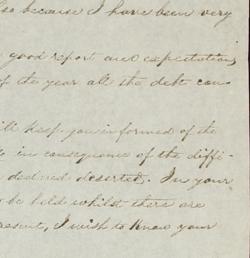 also because I have been very
good report and expectation
of the year all the debt con
will keep you informed of the
in consequence of the diffi-
deserted. In your
be held whilst there are
present, I wish to know your